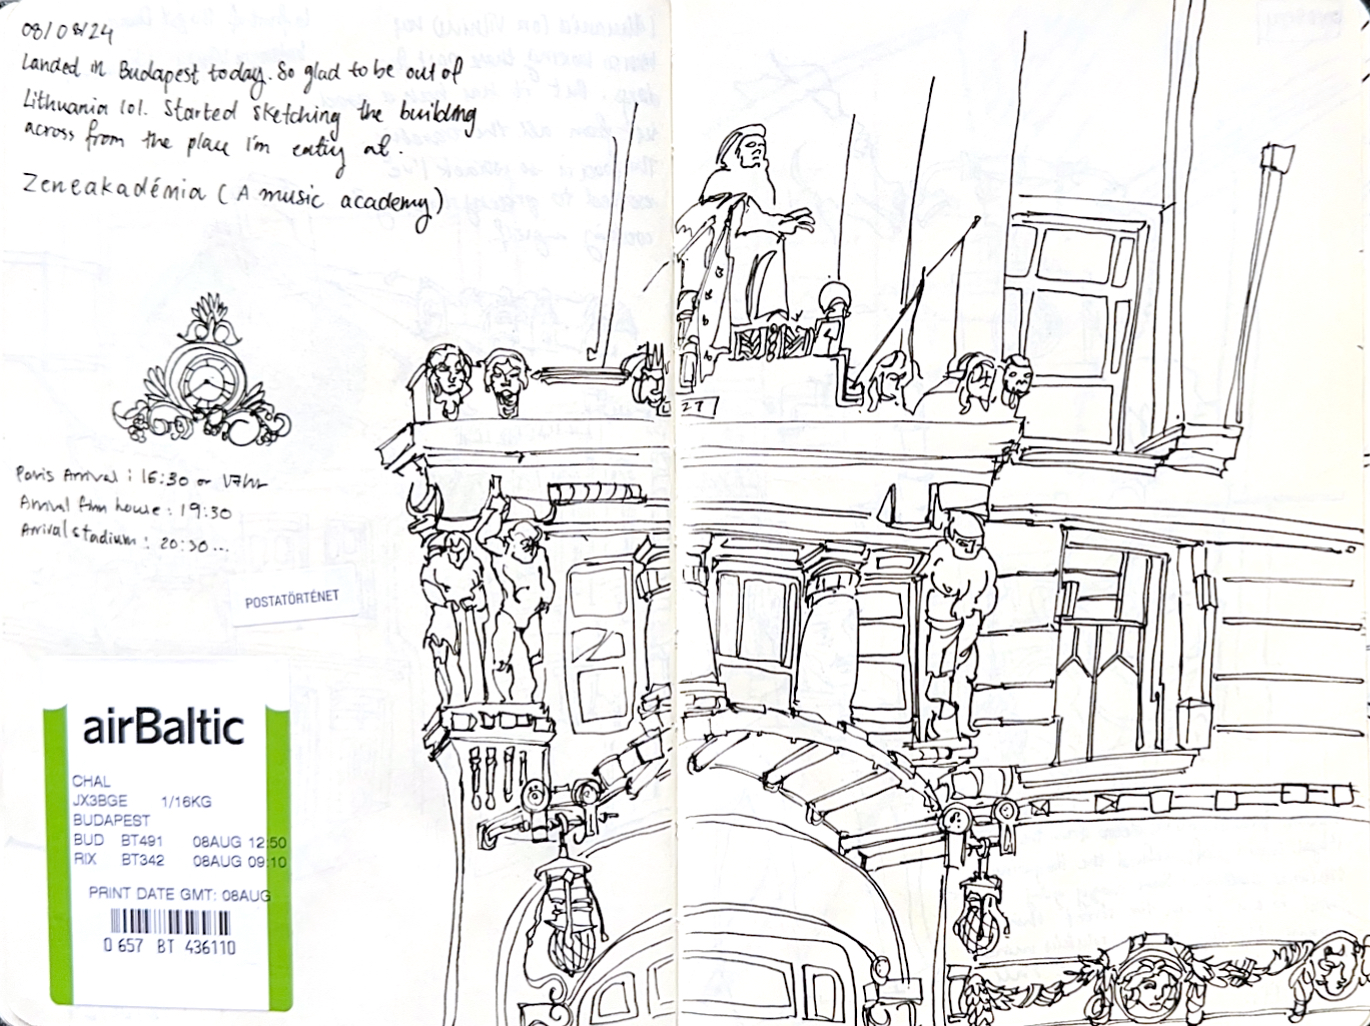 08/08/24
Landed in Budapest today. So glad to be out of
Lithuania lol. Started sketching the building
across from the place I'm eating at.
Zeneakadémia (A music academy)
Paris Arrival : 16:30 or 17hr
Arrival frm house : 19:30
Arrival stadium : 20:30...
POSTATÖRTÉNET
airBaltic
CHAL
JX3BGE 1/16KG
BUDAPEST
BUD BT491 08AUG 12:50
RIX BT342 08AUG 09:10
PRINT DATE GMT: 08AUG
0 657 BT 436110
27